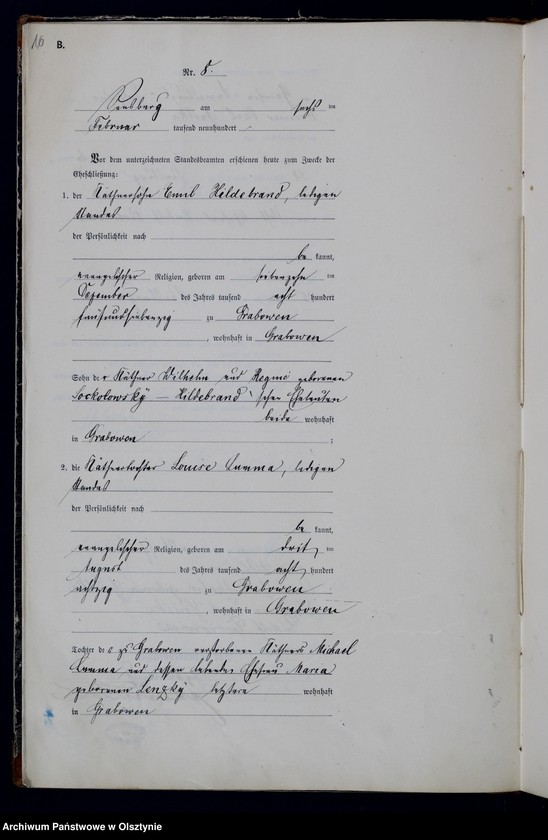 16
B.
Nr. 8.
Sensburg am sechs ten
Februar tausend neunhundert
Vor dem unterzeichneten Standesbeamten erschienen heute zum Zwecke der
Eheschließung:
1. der Käthnersohn Emil Hildebrand, ledigen
Standes
der Persönlichkeit nach
be kannt,
evangelischer Religion, geboren am siebenzehn ten
Dezember des Jahres tausend acht hundert
fünfundsiebenzig zu Grabowen
, wohnhaft in Grabowen
Sohn der Käthner Wilhelm und Regine geborenen
Sockolowsky — Hildebrand'schen Eheleuten
beide wohnhaft
in Grabowen ;
2. die Käthnertochter Louise, ledigen
Standes
der Persönlichkeit nach
be kannt,
evangelischer Religion, geboren am drit ten
August des Jahres tausend acht hundert
achtzig zu Grabowen
, wohnhaft in Grabowen
Tochter des zu Grabowen verstorbenen Käthners Michael
und dessen lebender Ehefrau Maria
geborenen Lenzky letztere wohnhaft
in Grabowen
Archiwum Państwowe w Olsztynie